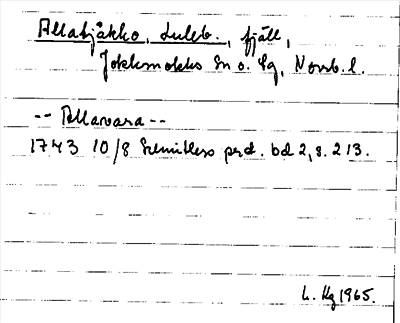 Allatjåkko, Luleb., fjäll,
Jokkmokks sn o. lg, Norrb. l.
-- Allawara --
1743 10/8 prot. bd 2, s. 213.
L. Hg 1965.